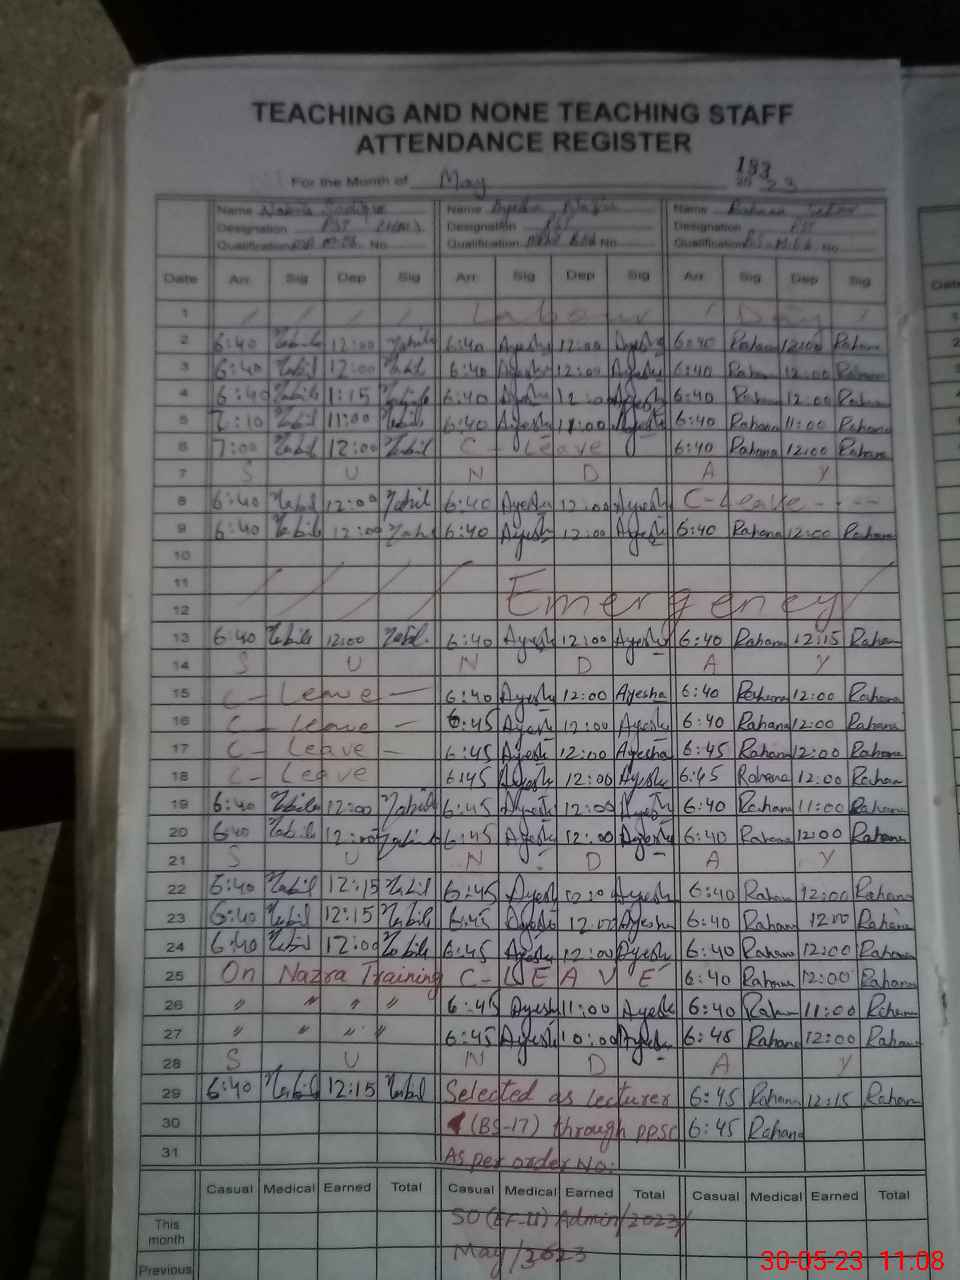 TEACHING AND NONE TEACHING STAFF
ATTENDANCE REGISTER
183
For the Month of May 20 23
Name Name Ayesha Name
Designation PST Designation PST Designation PST
Qualification No. Qualification No. Qualification No.
Date Arr. Sig Dep Sig Arr. Sig Dep Sig Arr. Sig Dep Sig
1 / / / / Labour / Day /
2 6:40 Nabil 12:00 Nabil 6:40 Ayesha 12:00 Ayesha 6:40 Rahana 12:00 Rahana
3 6:40 Nabil 12:00 Nabil 6:40 Ayesha 12:00 Ayesha 6:40 Rahana 12:00 Rahana
4 6:40 Nabil 1:15 Nabil 6:40 Ayesha 12:00 Ayesha 6:40 Rahana 12:00 Rahana
5 7:10 Nabil 11:00 Nabil 6:40 Ayesha 11:00 Ayesha 6:40 Rahana 11:00 Rahana
6 7:00 Nabil 12:00 Nabil C - Leave 6:40 Rahana 12:00 Rahana
7 S U N D A Y
8 6:40 Nabil 12:00 Nabil 6:40 Ayesha 12:00 Ayesha C-Leave - - -
9 6:40 Nabil 12:00 Nabil 6:40 Ayesha 12:00 Ayesha 6:40 Rahana 12:00 Rahana
10
11 / / / / Emergency /
12
13 6:40 Nabil 12:00 Nabil 6:40 Ayesha 12:00 Ayesha 6:40 Rahana 12:15 Rahana
14 S U N D A Y
15 C - Leave - 6:40 Ayesha 12:00 Ayesha 6:40 Rahana 12:00 Rahana
16 C - Leave - 6:45 Ayesha 12:00 Ayesha 6:40 Rahana 12:00 Rahana
17 C - Leave - 6:45 Ayesha 12:00 Ayesha 6:45 Rahana 12:00 Rahana
18 C - Leave 6:45 Ayesha 12:00 Ayesha 6:45 Rahana 12:00 Rahana
19 6:40 Nabil 12:00 Nabil 6:45 Ayesha 12:00 Ayesha 6:40 Rahana 11:00 Rahana
20 6:40 Nabil 12:00 Nabil 6:45 Ayesha 12:00 Ayesha 6:40 Rahana 12:00 Rahana
21 S U N D A Y
22 6:40 Nabil 12:15 Nabil 6:45 Ayesha Ayesha 6:40 Rahana 12:00 Rahana
23 6:40 Nabil 12:15 Nabil 6:45 Ayesha 12:00 Ayesha 6:40 Rahana 12:00 Rahana
24 6:40 Nabil 12:00 Nabil 6:45 Ayesha 12:00 Ayesha 6:40 Rahana 12:00 Rahana
25 On Nazra Training C - LEAVE 6:40 Rahana 12:00 Rahana
26 〃 〃 〃 〃 6:45 Ayesha 11:00 Ayesha 6:40 Rahana 11:00 Rahana
27 〃 〃 〃 〃 6:45 Ayesha 10:00 Ayesha 6:45 Rahana 12:00 Rahana
28 S U N D A Y
29 6:40 Nabil 12:15 Nabil Selected as Lecturer 6:45 Rahana 12:15 Rahana
30 (BS-17) through PPSC 6:45 Rahana
31 As per order No:
Casual Medical Earned Total Casual Medical Earned Total Casual Medical Earned Total
This month SO(EF-II) Admin/2023/
Previous May/2023
30-05-23 11.08